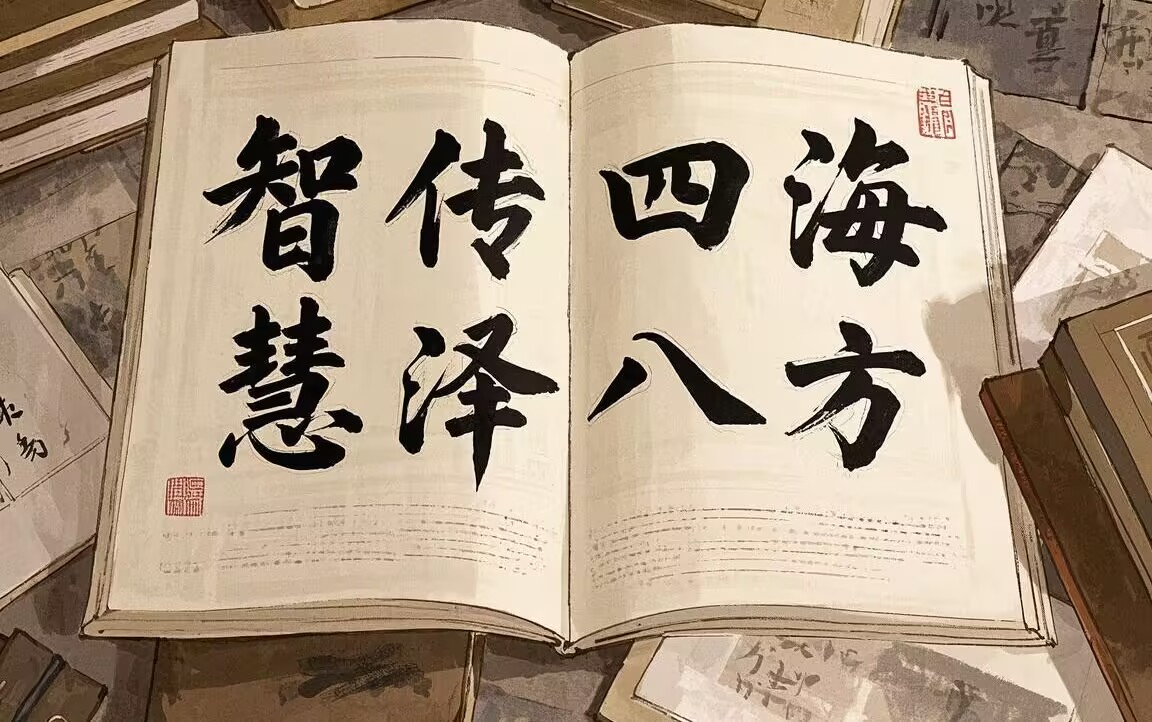 智传四海
慧泽八方